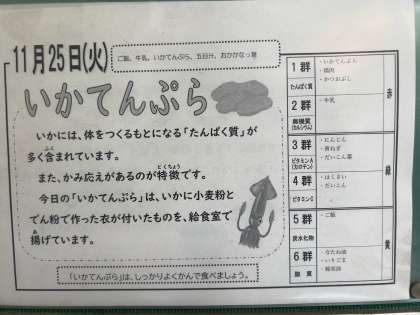 11月25日(火)
ご飯、牛乳、いかてんぷら、五目汁、おかかなっ葉
いかてんぷら
いかには、体をつくるもとになる「たんぱく質」が
多く含まれています。
また、かみ応えがあるのが特徴です。
今日の「いかてんぷら」は、いかに小麦粉と
でん粉で作った衣が付いたものを、給食室で
揚げています。
「いかてんぷら」は、しっかりよくかんで食べましょう。
1群
たんぱく質
・いかてんぷら
・鶏肉
・かつおぶし
赤
2群
無機質
(カルシウム)
・牛乳
3群
ビタミンA
(カロテン)
・にんじん
・長ねぎ
・だいこん葉
緑
4群
ビタミンC
・はくさい
・だいこん
5群
炭水化物
・ご飯
黄
6群
脂質
・なたね油
・いりごま